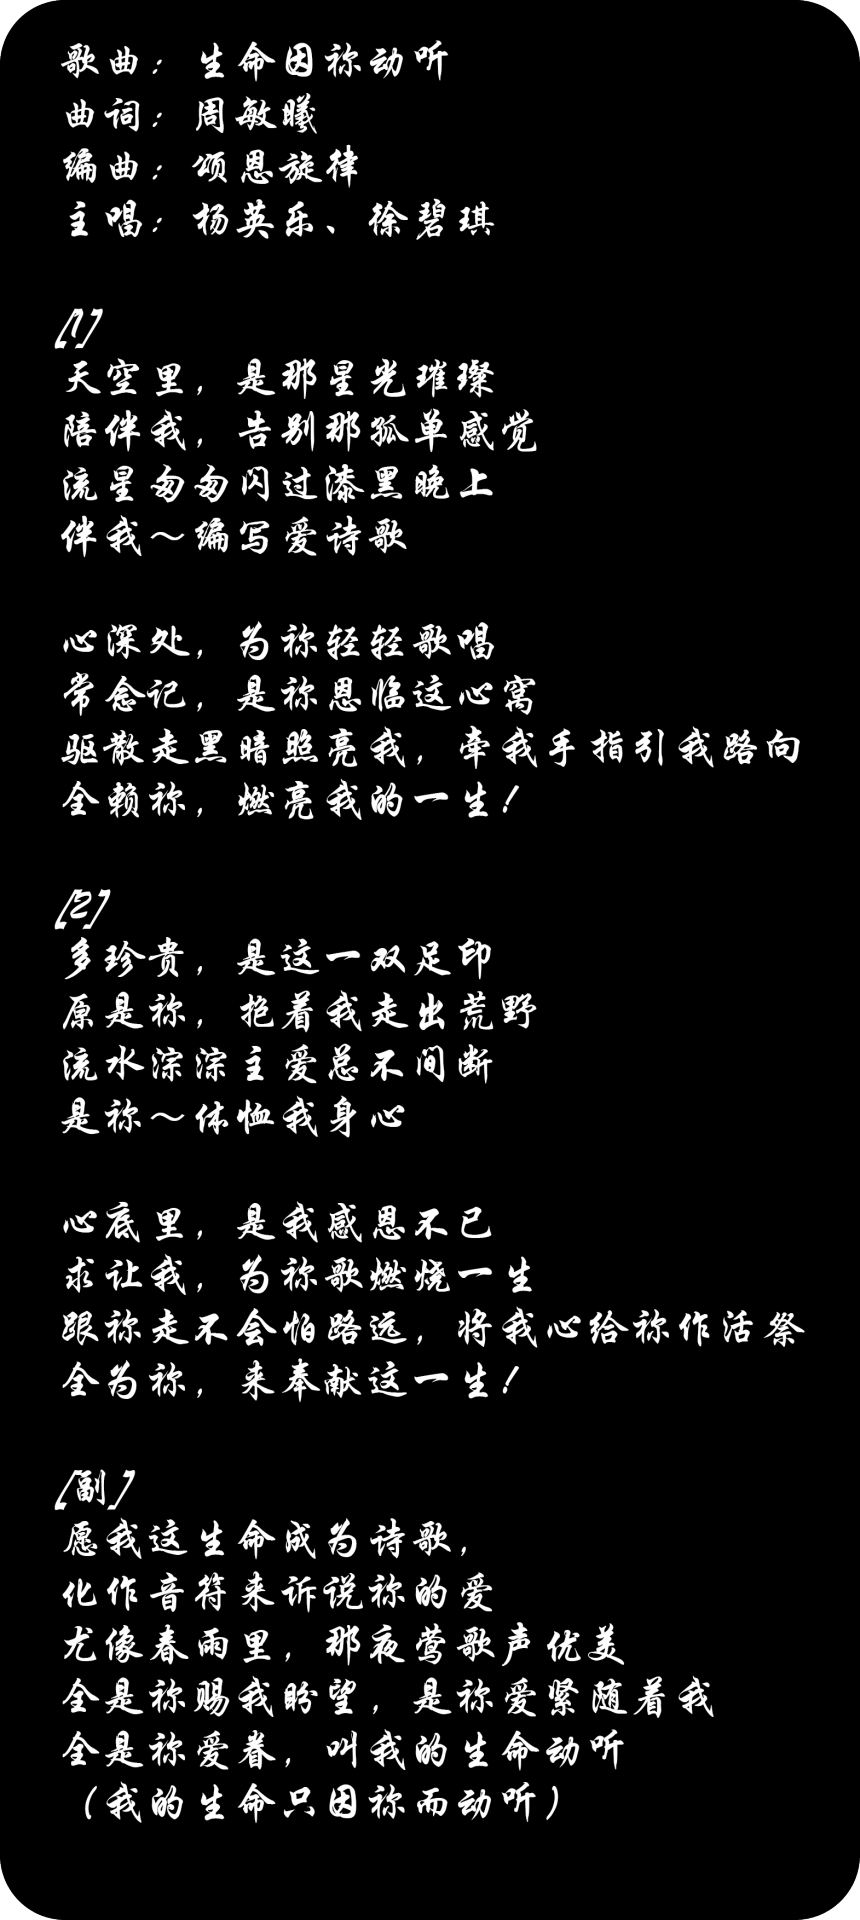 歌曲：生命因祢动听
曲词：周敏曦
编曲：颂恩旋律
主唱：杨英乐、徐碧琪
[1]
天空里，是那星光璀璨
陪伴我，告别那孤单感觉
流星匆匆闪过漆黑晚上
伴我～编写爱诗歌
心深处，为祢轻轻歌唱
常念记，是祢恩临这心窝
驱散走黑暗照亮我，牵我手指引我路向
全赖祢，燃亮我的一生！
[2]
多珍贵，是这一双足印
原是祢，抱着我走出荒野
流水淙淙主爱总不间断
是祢～体恤我身心
心底里，是我感恩不已
求让我，为祢歌燃烧一生
跟祢走不会怕路远，将我心给祢作活祭
全为祢，来奉献这一生！
[副]
愿我这生命成为诗歌，
化作音符来诉说祢的爱
尤像春雨里，那夜莺歌声优美
全是祢赐我盼望，是祢爱紧随着我
全是祢爱眷，叫我的生命动听
（我的生命只因祢而动听）